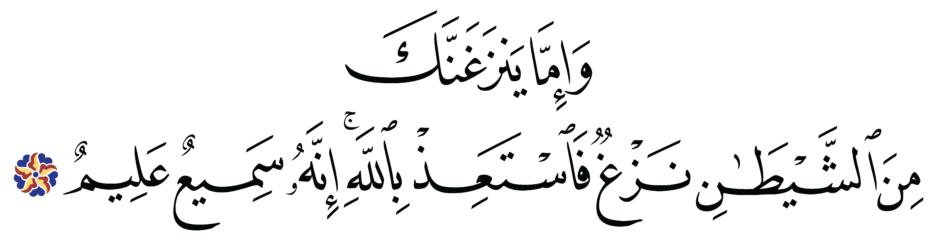 وَإِمَّا يَنزَغَنَّكَ
مِنَ ٱلشَّيْطَـٰنِ نَزْغٌ فَٱسْتَعِذْ بِٱللَّهِ ۚ إِنَّهُۥ سَمِيعٌ عَلِيمٌ